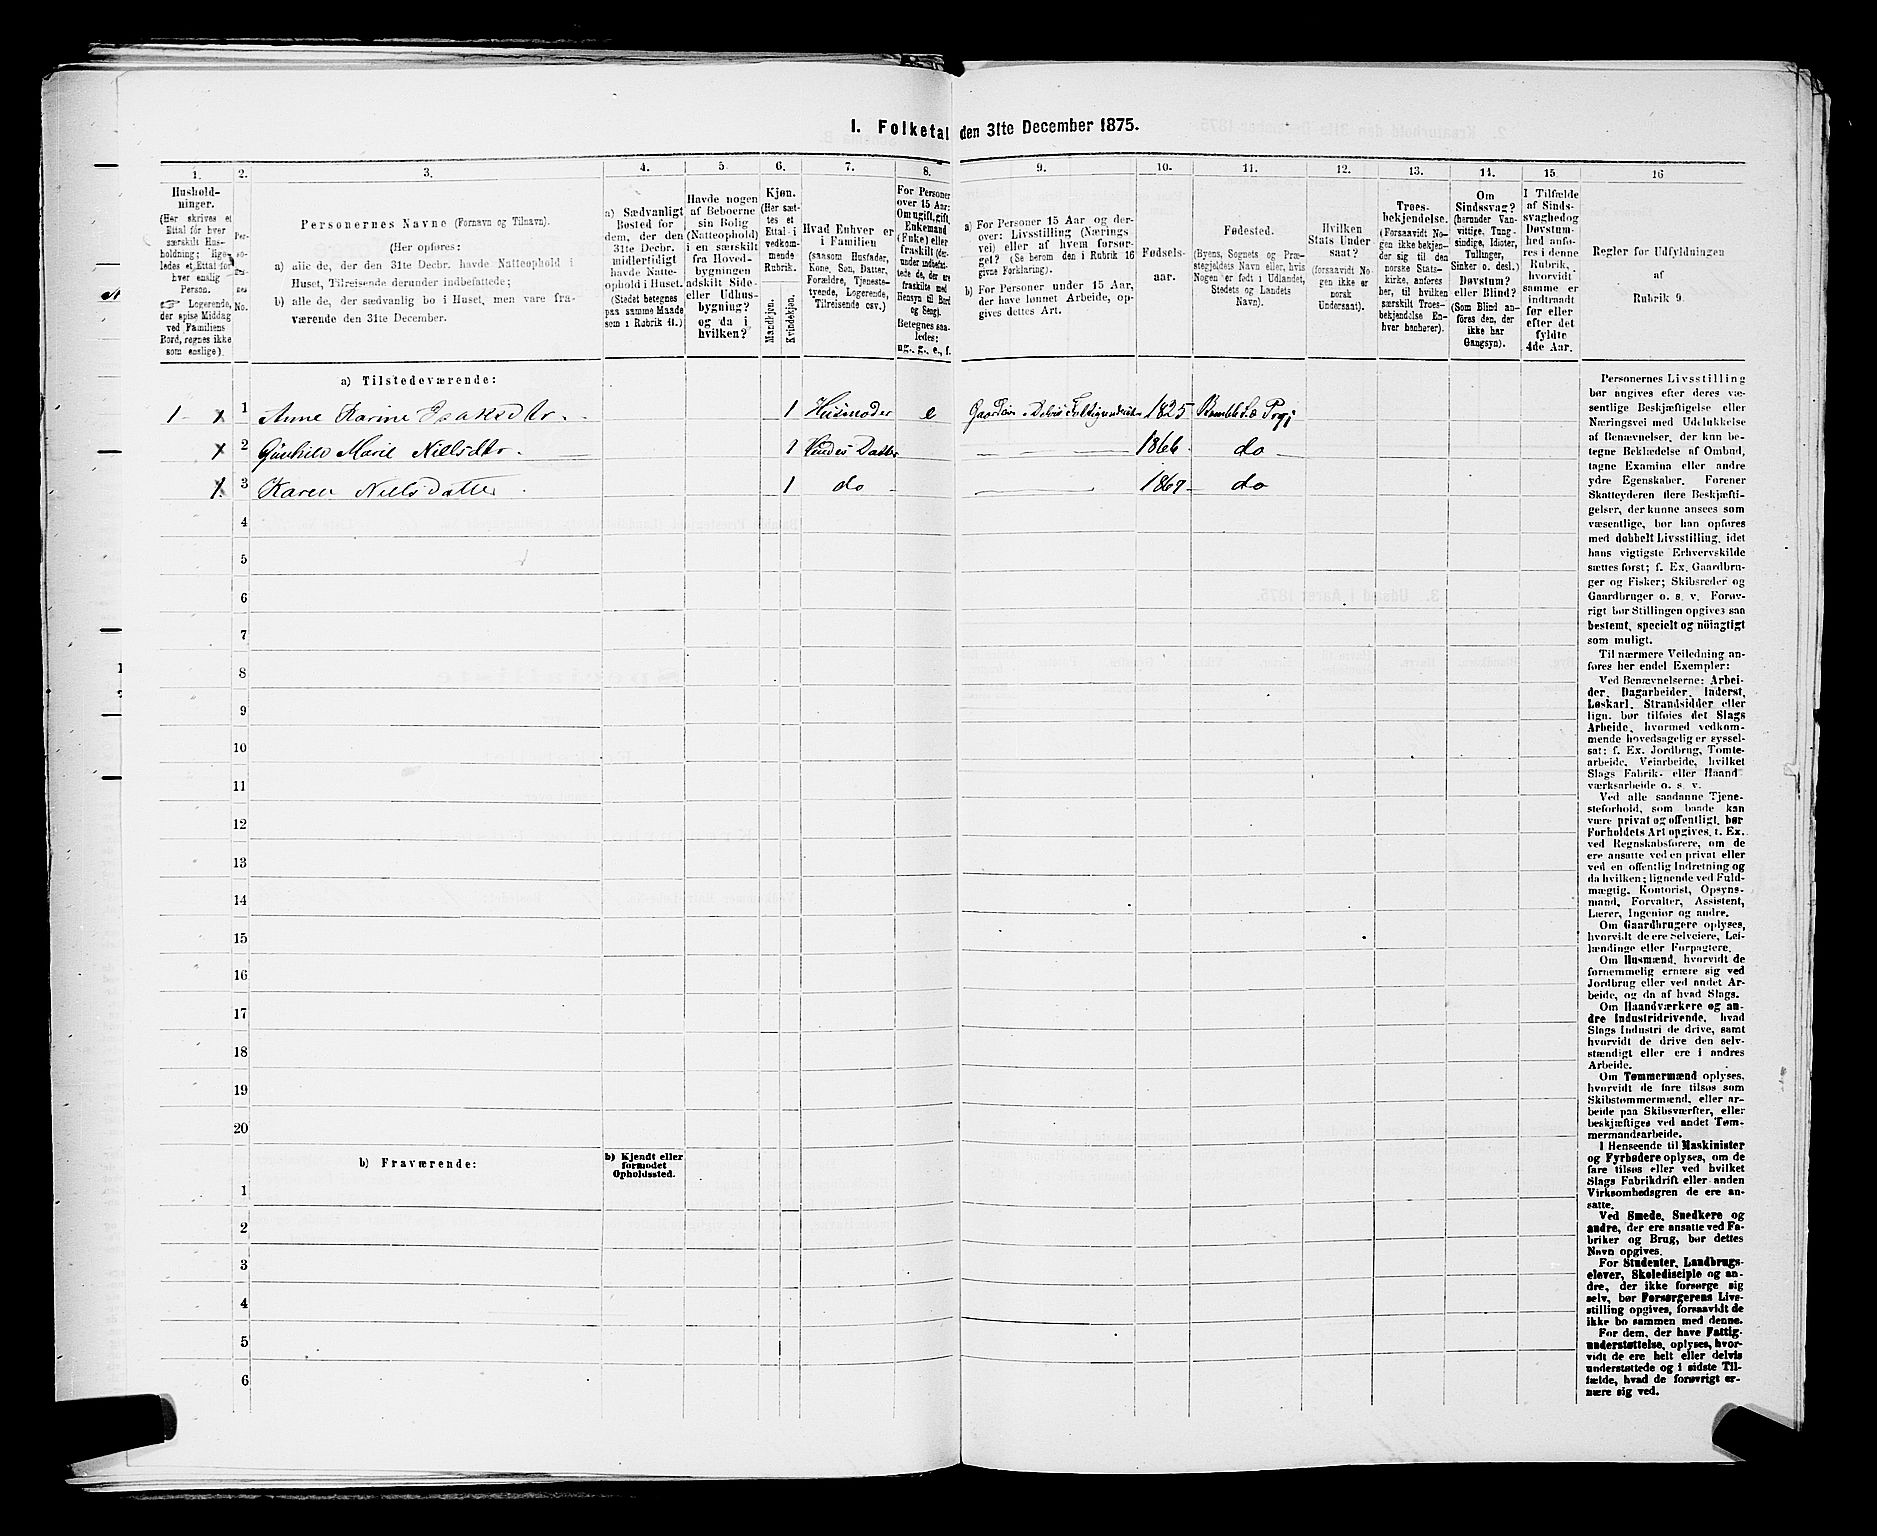 1. Folketal den 31te December 1875.
1.
Hushold-
ninger.
(Her skrives et
Ettal for hver
særskilt Hus-
holdning; lige-
ledes et Ettal for
hver enslig
Person.
Logerende,
der spise Middag
ved Familiens
Bord, regnes ikke
som enslige).
2.
No.
3.
Personernes Navne (Fornavn og Tilnavn).
(Her opføres:
a) alle de, der den 31te Decbr. havde Natteophold i
Huset, Tilreisende derunder indbefattede;
b) alle de, der sædvanlig bo i Huset, men vare fra-
værende den 31te December.
4.
a) Sædvanligt
Bosted for
dem, der den
31te Decbr.
midlertidigt
havde Natte-
ophold i Huset.
(Stedet betegnes
paa samme Maade
som i Rubrik 11.)
5.
Havde nogen
af Beboerne
sin Bolig
(Natteophold)
i en særskilt
fra Hoved-
bygningen
adskilt Side-
eller Udhus-
bygning?
og da i
hvilken?
6.
Kjøn.
(Her sæt-
tes et
Ettal i
vedkom-
mende
Rubrik.
Mandkjøn.
Kvindekjøn.
7.
Hvad Enhver er
i Familien
(saasom Husfader,
Kone, Søn, Datter,
Forældre, Tjeneste-
tyende, Logerende,
Tilreisende osv.)
8.
For Personer
over 15 Aar:
Om ugift, gift,
Enkemand
(Enke) eller
fraskilt (der-
under indbefat-
tede de, der ere
fraskilte med
Hensyn til Bord
og Seng).
Betegnes saa-
ledes:
ug., g., e., f.
9.
a) For Personer 15 Aar og der-
over: Livsstilling (Nærings-
vei) eller af hvem forsør-
get? (Se herom den i Rubrik 16
givne Forklaring).
b) For Personer under 15 Aar,
der have lønnet Arbeide, op-
gives dettes Art.
10.
Fødsels-
aar.
11.
Fødested.
(Byens, Sognets og Præ-
stegjeldets Navn eller, hvis
Nogen er født i Udlandet,
Stedets og Landets
Navn).
12.
Hvilken
Stats Under-
saat?
(forsaavidt No-
gen ikke er
norsk
Undersaat).
13.
Troes-
bekjendelse.
(Forsaavidt No-
gen ikke bekjen-
der sig til den
norske Stats-
kirke, anføres
her, til hvilken
særskilt Troes-
bekjendelse En-
hver henhører).
14.
Om
Sindssvag?
(herunder Van-
vittige, Tung-
sindige, Idioter,
Tullinger,
Sinker o. desl.)
Døvstum?
eller Blind?
(Som Blind an-
føres den, der
ikke har
Gangsyn).
15
I Tilfælde
af Sinds-
svaghed og
Døvstum-
hed anfø-
res i denne
Rubrik,
hvorvidt
samme er
indtraadt
før eller
efter det
fyldte
4de Aar.
16
Regler for Udfyldningen
af
Rubrik 9.
a) Tilstedeværende:
1 x 1 Anne Karine Isaksdtr. 1 Husmoder e 1825
x 2 Gunhild Marie Nielsdtr. 1 Hendes Datter 1866 do
x 3 Karen Nielsdatter 1 do 1869 do
4
5
6
7
8
9
10
11
12
13
14
15
16
17
18
19
20
b) Fraværende:
b) Kjendt eller
formodet
Opholdssted.
1
2
3
4
5
6
Personernes Livsstilling
bør angives efter deres væ-
sentlige Beskjæftigelse eller
Næringsvei med Udelukkelse
af Benævnelser, der kun be-
tegne Beklædelse af Ombud,
tagne Examina eller andre
ydre Egenskaber. Forener
Skatteyderen flere Beskjæfti-
gelser, der kunne ansees som
væsentlige, bør han opføres
med dobbelt Livsstilling, idet
hans vigtigste Erhvervskilde
sættes først; f. Ex. Gaardbru-
ger og Fisker; Skibsreder og
Gaardbruger o. s. v. Forøv-
rigt bør Stillingen opgives saa
bestemt, specielt og nöiagtigt
som muligt.
Til nærmere Veiledning an-
føres her endel Exempler:
Ved Benævnelserne: Arbei-
der, Dagarbeider, Inderst,
Løskarl, Strandsidder eller
lign. bør tilføies det Slags
Arbeide, hvormed vedkom-
mende hovedsagelig er syssel-
sat; f. Ex. Jordbrug, Tomte-
arbeide, Veiarbeide, hvilket
Slags Fabrik- eller Haand-
værksarbeide o. s. v.
Ved alle saadanne Tjene-
steforhold, som baade kan
være privat og offentligt, bør
Forholdets Art opgives, t. Ex.
ved Regnskabsførere, om de
ere ansatte ved en privat eller
ved en offentlig Indretning og
da hvilken; lignende ved Fuld-
mægtig, Kontorist, Opsyns-
mand, Forvalter, Assistent,
Lærer, Ingeniør og andre.
Om Gaardbrugere oplyses,
hvorvidt de ere Selveiere, Lei-
lændinge eller Forpagtere.
Om Husmænd, hvorvidt de
fornemmelig ernære sig ved
Jordbrug eller ved andet Ar-
beide, og da af hvad Slags.
Om Haandværkere og an-
dre Industridrivende, hvad
Slags Industri de drive, samt
hvorvidt de drive den selv-
stændigt eller ere i andres
Arbeide.
Om Tømmermænd oplyses,
hvorvidt de fare tilsøs som
Skibstømmermænd, eller ar-
beide paa Skibsværfter, eller
beskjæftiges ved andet Tøm-
mermandsarbeide.
I Henseende til Maskinister
og Fyrbødere oplyses, om de
fare tilsøs eller ved hvilket
Slags Fabrikdrift eller anden
Virksomhedsgren de ere an-
satte.
Ved Smede, Snedkere og
andre, der ere ansatte ved Fa-
briker og Brug, bør dettes
Navn opgives.
For Studenter, Landbrugs-
elever, Skoledisciple og an-
dre, der ikke forsørge sig
selv, bør Forsørgerens Livs-
stilling opgives, forsaavidt de
ikke bo sammen med denne.
For dem, der have Fattig-
understøttelse, oplyses, hvor-
vidt de ere helt eller delvis
understøttede og i sidste Til-
fælde, hvad de forøvrigt er-
nære sig ved.